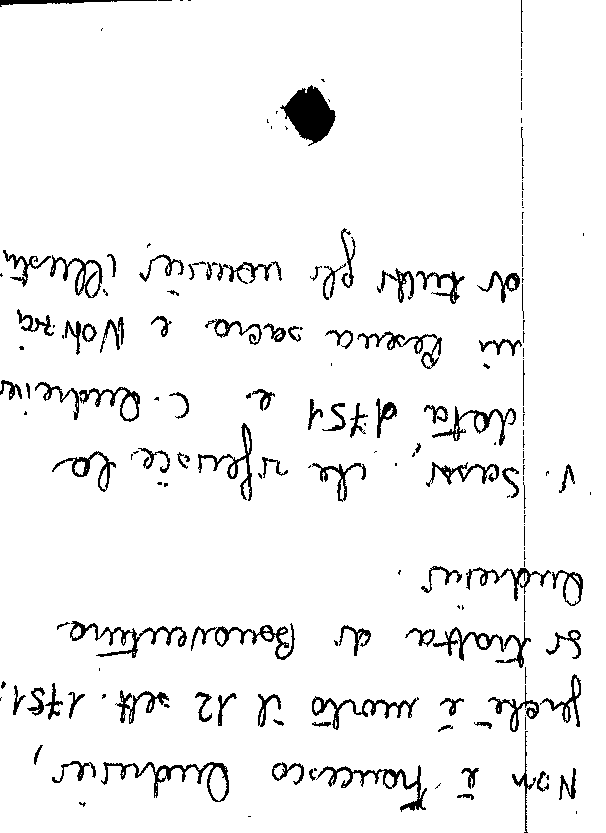 Non è Francesco Andreini,
perché è morto il 12 sett. 1751.
Si tratta di Bonaventura
Andreini.
V. Sassi, che riferisce la
data, 1751 e C. Andreini
in Cesena sacra e Notizia
di tutti gli uomini illustri